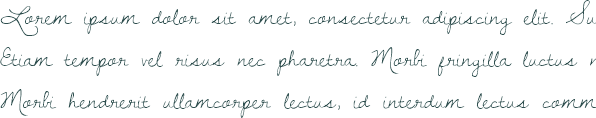 Lorem ipsum dolor sit amet, consectetur adipiscing elit. Su
Etiam tempor vel risus nec pharetra. Morbi fringilla luctus
Morbi hendrerit ullamcorper lectus, id interdum lectus comm